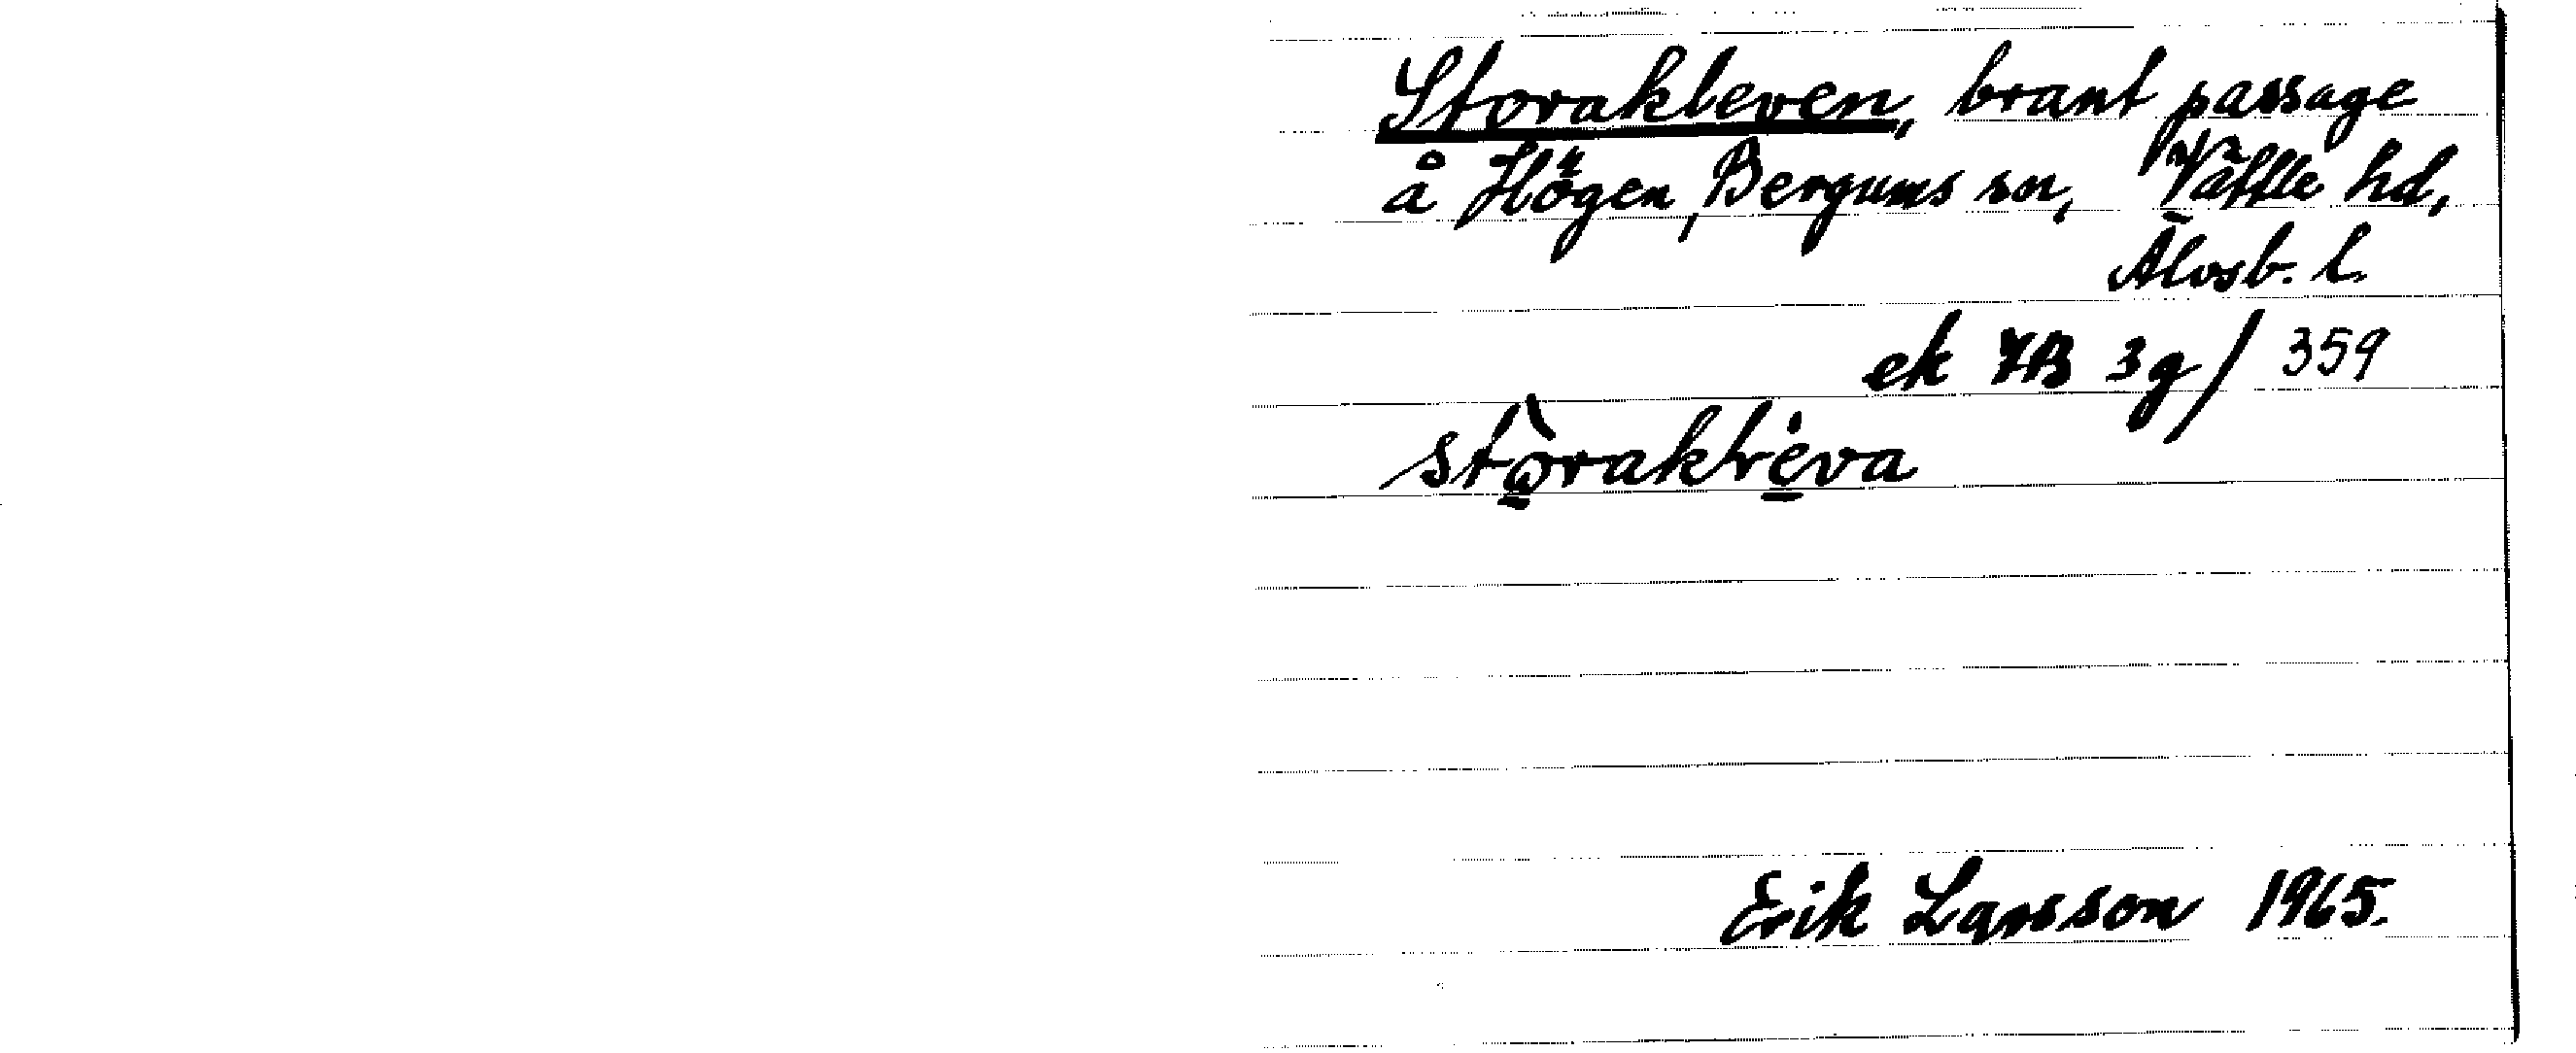 Storakleven, brant passage
å Högen, Bergums sn, Vättle hd,
Älvsb. l.
ek 7B 3g/359
stòrakléva
Erik Larsson 1965.